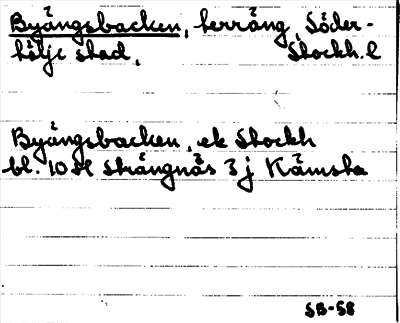 Byängsbacken, terräng, Söder-
tälje stad, Stockh. l
Byängsbacken, ek Stockh
bl. 10 SV Strängnäs 3 j Kämsta
SB-58